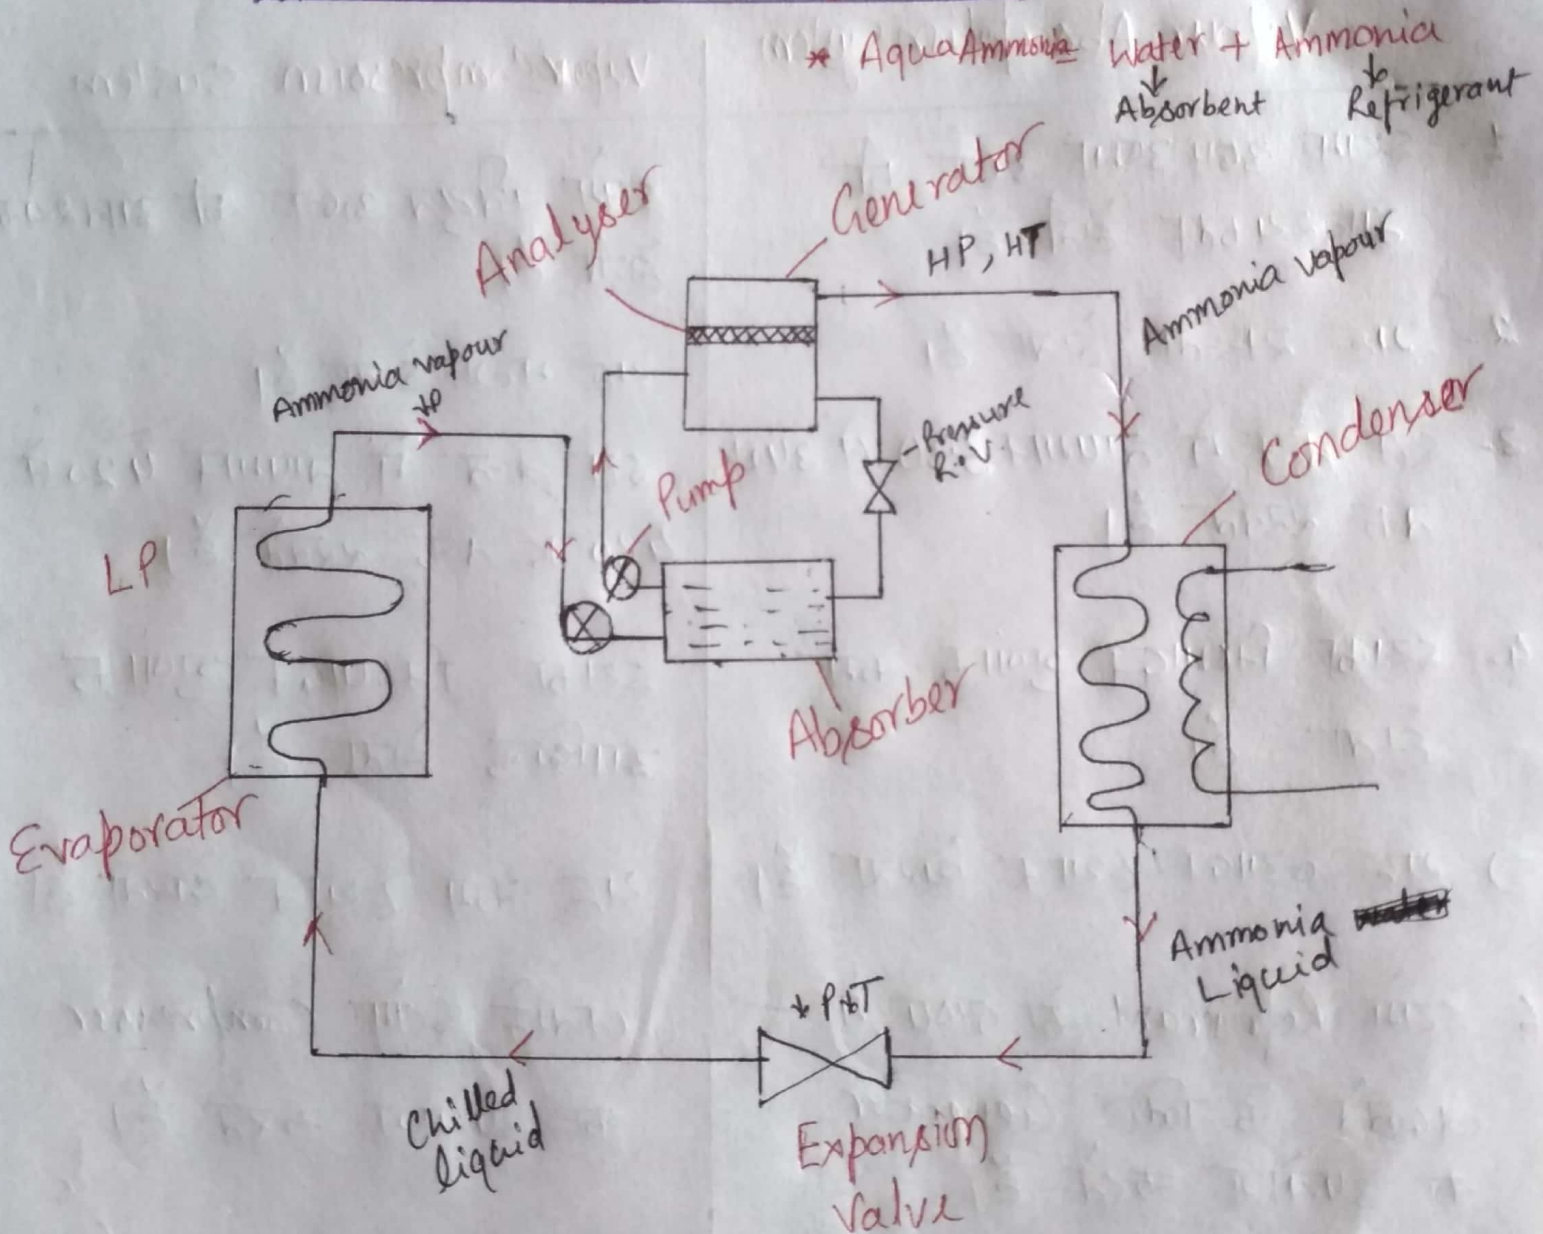 * AquaAmmonia Water + Ammonia
↓ ↓
Absorbent Refrigerant
Generator
Analyser
HP, HT
Ammonia vapour
Ammonia vapour
↓P
Condenser
- Pressure
R.V.
Pump
LP
Absorber
Evaporator
Ammonia
Liquid
↓ P↓T
Chilled
liquid
Expansion
Valve